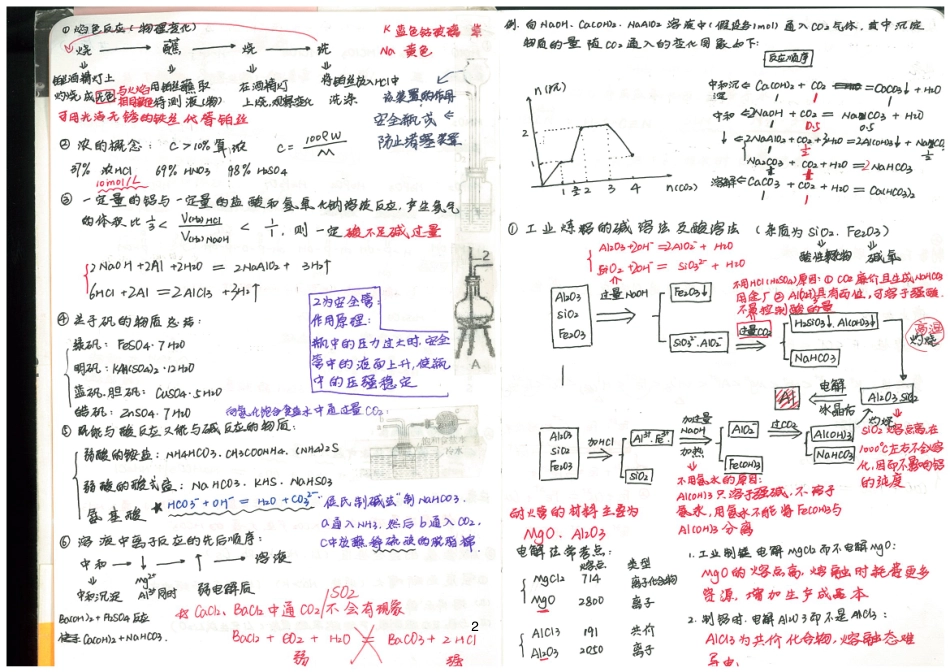 ① 焰色反应(物理变化)
烧 → 蘸 → 烧 → 洗
K 蓝色钴玻璃
Na 黄色
在酒精灯上
灼烧成无色
与火焰
相同颜色
用铂丝蘸取
待测液(物)
在酒精灯
上烧,观察变化
将铂丝放入HCl中
洗涤
可用光洁无锈的铁丝代替铂丝
该装置的作用
安全瓶或
防止堵塞装置
② 浓的概念: C>10%算浓 C= 1000ρW/M
37% 浓HCl 69% HNO3 98% H2SO4
10mol/L
③ 一定量的铝与一定量的盐酸和氢氧化钠溶液反应,产生氢气
的体积比 1/3 < V(H2)HCl / V(H2)NaOH < 1/1, 则一定 酸不足碱过量
2NaOH +2Al +2H2O = 2NaAlO2 + 3H2↑
6HCl +2Al =2AlCl3 +3H2↑
2为安全管
作用原理:
瓶中的压力过大时,安全
管中的液面上升,使瓶
中的压强稳定
2
A
④ 关于矾的物质总结:
绿矾: FeSO4·7H2O
明矾: KAl(SO4)2·12H2O
蓝矾,胆矾: CuSO4·5H2O
皓矾: ZnSO4·7H2O
向氨化饱和食盐水中通过量CO2
饱和食盐水
冷水
⑤ 既能与酸反应又能与碱反应的物质:
弱酸的铵盐: NH4HCO3. CH3COONH4. (NH4)2S
弱酸的酸式盐: NaHCO3. KHS. NaHSO3
氨基酸
★ HCO3⁻+OH⁻ = H2O +CO3²⁻
"侯氏制碱法"制NaHCO3.
a通入NH3, 然后b通入CO2,
C中放蘸稀硫酸的脱脂棉
⑥ 溶液中离子反应的先后顺序:
中和 → ↓ → → 溶液
中和沉淀
Mg²⁺
Al³⁺同时
弱电解后
Ba(OH)2+H2SO4反应
Ca(OH)2+NaHCO3.
SO2
☆ CaCl2、BaCl2中通CO2/不会有现象
BaCl2 + CO2 + H2O = BaCO3 + 2HCl
弱 强
2
例. 向NaOH. Ca(OH)2. NaAlO2 溶液中(假设各1mol)通入CO2气体, 其中沉淀
物质的量随CO2通入的变化图象如下:
反应顺序
n(沉)
2
1
1 3/2 2 3 4
n(CO2)
中和沉 Ca(OH)2 + CO2 =CaCO3↓ + H2O
1 1
中和 2NaOH + CO2 = Na2CO3 + H2O
1 0.5 0.5
↓ 2NaAlO2 + CO2 +3H2O =2Al(OH)3↓ + Na2CO3
1 1/2
Na2CO3 + CO2 +H2O =2NaHCO3
溶解 CaCO3 + CO2 + H2O = Ca(HCO3)2
1 1
① 工业炼铝的碱溶法及酸溶法 (杂质为SiO2. Fe2O3)
酸性氧化物 碱氧
Al2O3 +2OH⁻ =2AlO2⁻ + H2O
SiO2 +2OH⁻ = SiO3²⁻ + H2O
Al2O3
SiO2
Fe2O3
过量NaOH
Fe2O3↓
SiO3²⁻. AlO2⁻
不用HCl(H2SO4)原因: ① CO2廉价且生成NaHCO3
用途广 ② Al(OH)3具有两性, 可溶于强酸
不易控制酸的量
过量CO2
H2SiO3↓. Al(OH)3↓
NaHCO3
高温
灼烧
Al
电解
冰晶石
Al2O3 SiO2
灼烧
Al2O3
SiO2
Fe2O3
加HCl
Al³⁺. Fe³⁺
SiO2
加过量
NaOH
加热
AlO2⁻
Fe(OH)3
过CO2
Al(OH)3
NaHCO3
SiO2熔点高,在
1000°C左右不会熔
化,因而不影响铝
的纯度
不用氨水的原因:
Al(OH)3只溶于强碱, 不溶于
氨水, 用氨水不能将Fe(OH)3与
Al(OH)3分离
耐火零的材料主要为
MgO. Al2O3
电解法常考点:
熔点 类型
MgCl2 714 离子化合物
MgO 2800 离子
AlCl3 191 共价
Al2O3 2050 离子
1. 工业制镁电解MgCl2而不电解MgO:
MgO的熔点高, 熔融时耗费更多
资源, 增加生产成本
2. 制铝时. 电解Al2O3而不是AlCl3:
AlCl3为共价化合物, 熔融态难
导电